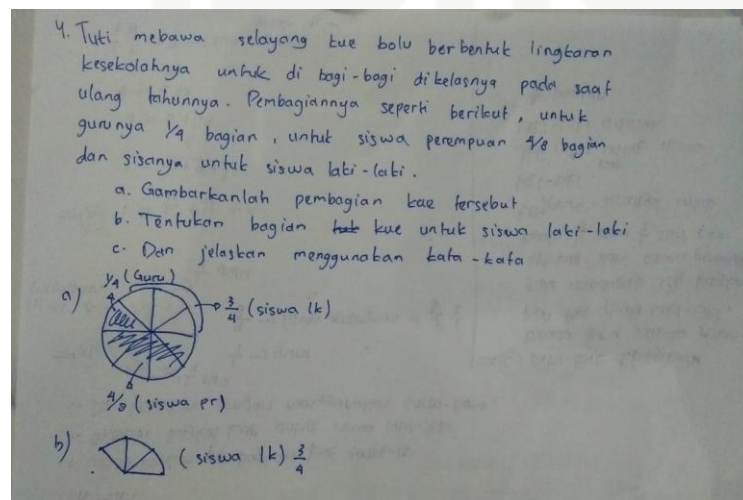 4. Tuti mebawa selayang kue bolu berbentuk lingkaran
kesekolahnya untuk di bagi-bagi dikelasnya pada saat
ulang tahunnya. Pembagiannya seperti berikut, untuk
gurunya 1/4 bagian, untuk siswa perempuan 4/8 bagian
dan sisanya untuk siswa laki-laki.
a. Gambarkanlah pembagian kue tersebut
b. Tentukan bagian kue untuk siswa laki-laki
c. Dan jelaskan menggunakan kata-kata
1/4 (Guru)
a) 3/4 (siswa lk)
4/8 (siswa pr)
b) (siswa lk) 3/4